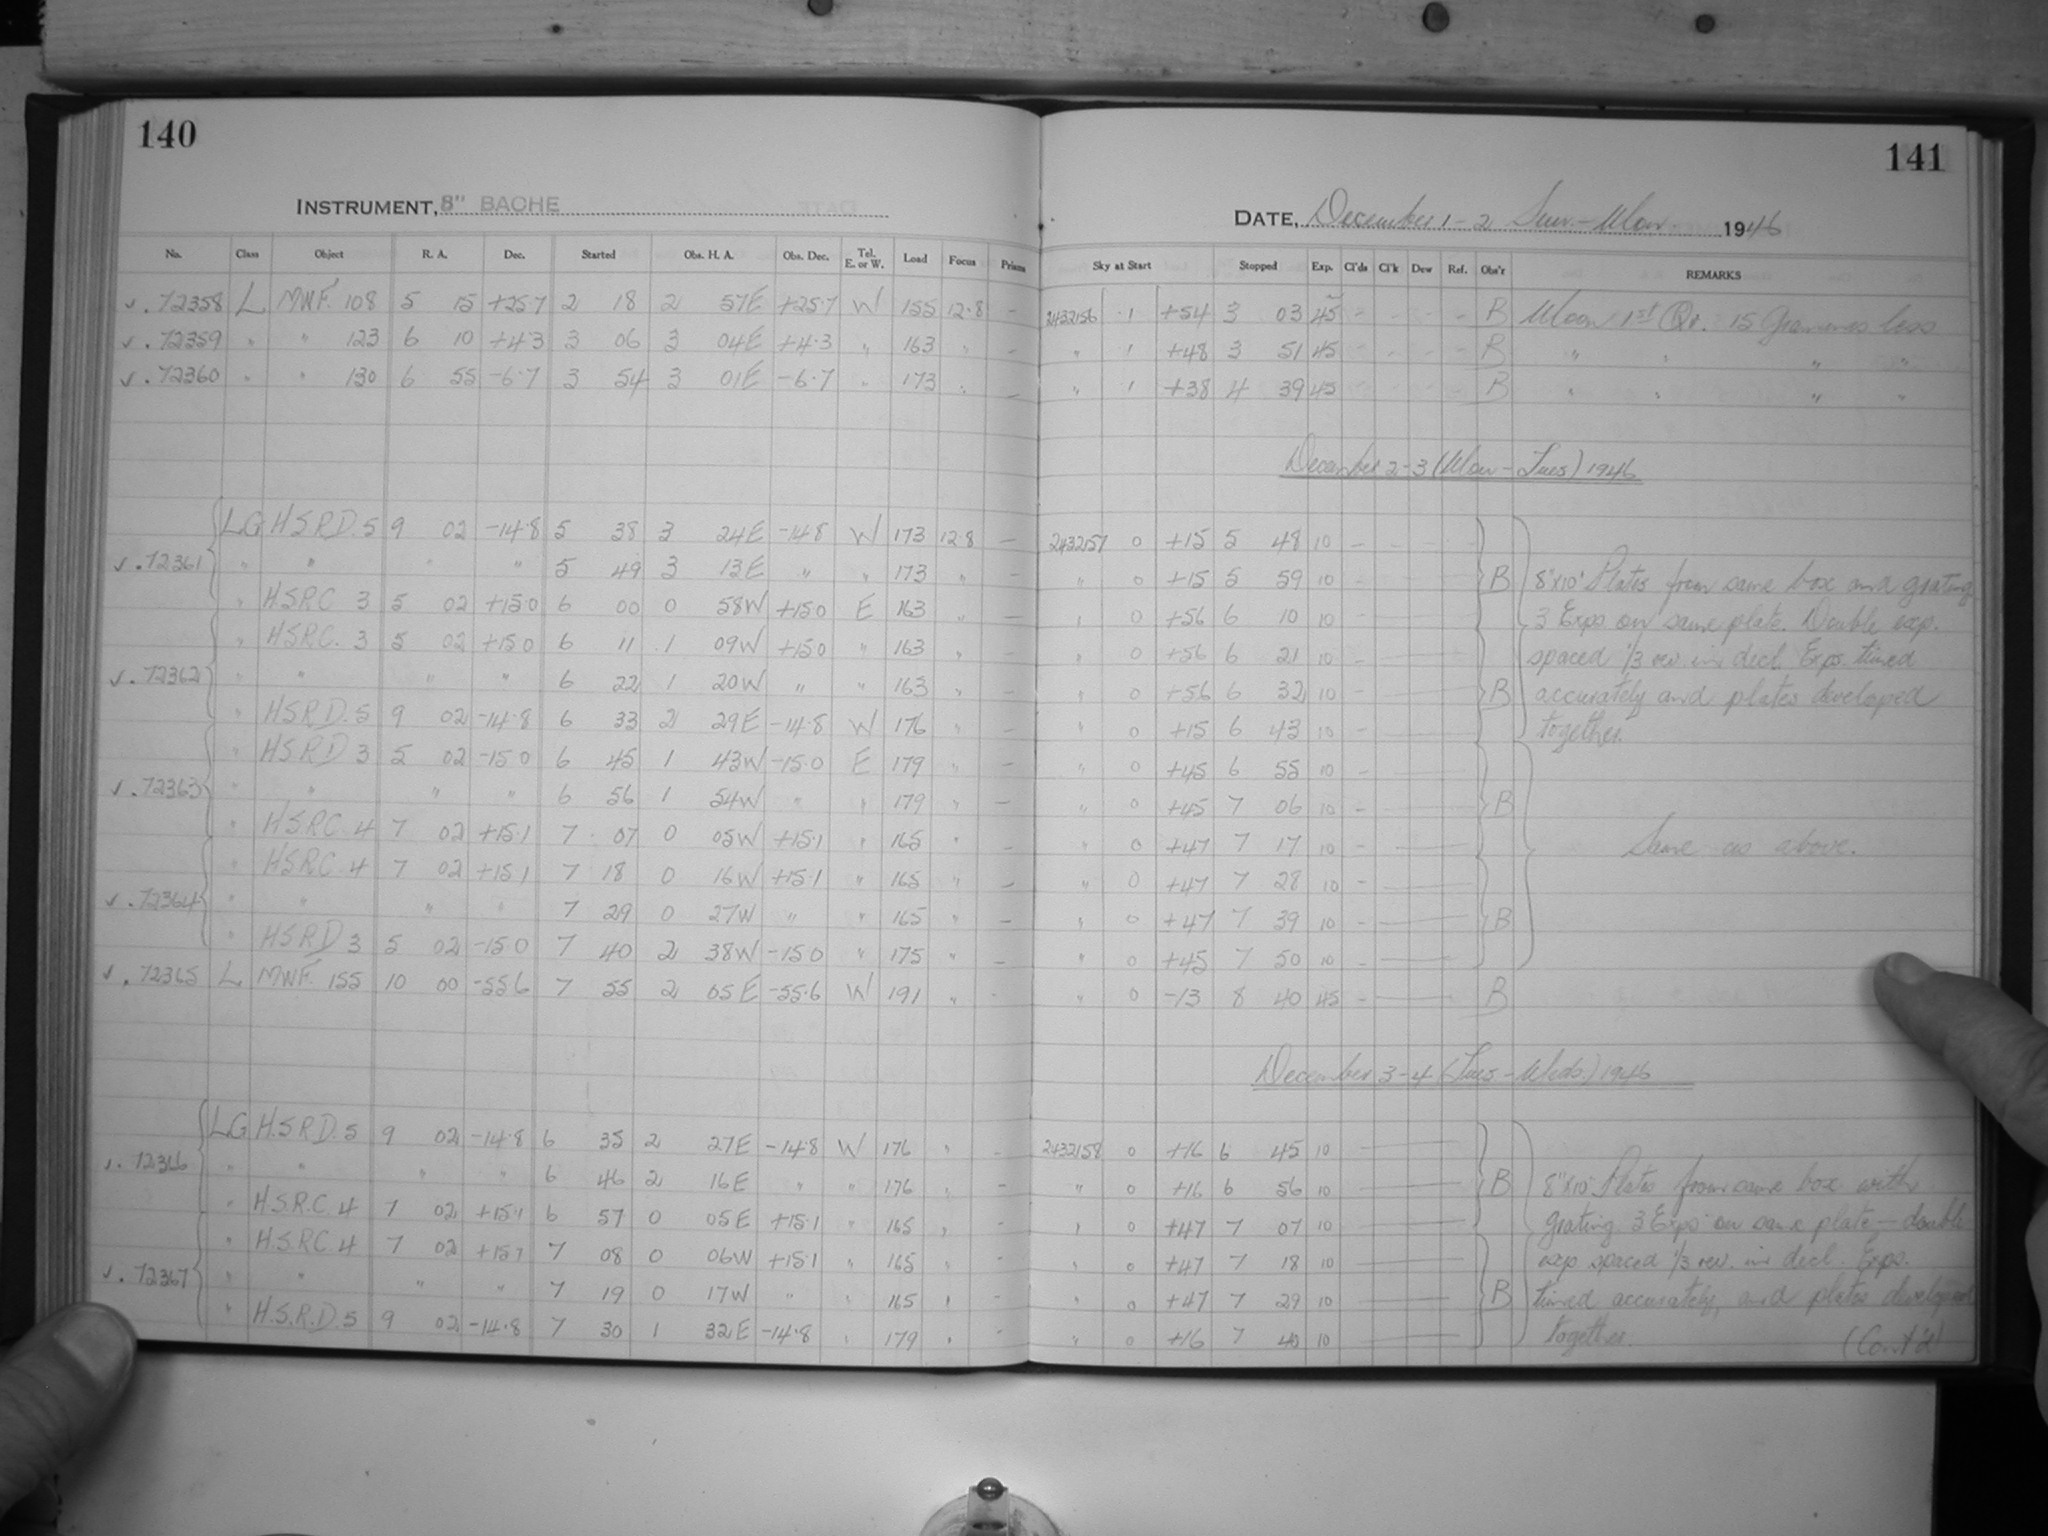 140
INSTRUMENT, 8" BACHE
No. Class Object R. A. Dec. Started Obs. H. A. Obs. Dec. Tel. E. or W. Load Focus Prisms
✓ . 72358 L MWF. 108 5 15 +25.7 2 18 2 57E +25.7 W 155 12.8 -
✓ . 72359 " " 123 6 10 +4.3 3 06 3 04E +4.3 " 163 " -
✓ . 72360 " " 130 6 55 -6.7 3 54 3 01E -6.7 " 173 " -
LG H.S.R.D. 5 9 02 -14.8 5 38 3 24E -14.8 W 173 12.8 -
✓ . 72361 " " " " 5 49 3 13E " " 173 " -
" H.S.R.C 3 5 02 +15.0 6 00 0 58W +15.0 E 163 " -
" H.S.R.C. 3 5 02 +15.0 6 11 1 09W +15.0 " 163 " -
✓ . 72362 " " " " 6 22 1 20W " " 163 " -
" H.S.R.D. 5 9 02 -14.8 6 33 2 29E -14.8 W 176 " -
" H.S.R.D 3 5 02 -15.0 6 45 1 43W -15.0 E 179 " -
✓ . 72363 " " " " 6 56 1 54W " " 179 " -
" H.S.R.C. 4 7 02 +15.1 7 07 0 05W +15.1 " 165 "
" H.S.R.C. 4 7 02 +15.1 7 18 0 16W +15.1 " 165 " -
✓ . 72364 " " " " 7 29 0 27W " " 165 " -
" H.S.R.D 3 5 02 -15.0 7 40 2 38W -15.0 " 175 " -
✓ . 72365 L MWF. 155 10 00 -55.6 7 55 2 05E -55.6 W 191 " -
LG H.S.R.D. 5 9 02 -14.8 6 35 2 27E -14.8 W 176 " -
✓ . 72366 " " " " 6 46 2 16E " " 176 " -
" H.S.R.C. 4 7 02 +15.1 6 57 0 05E +15.1 " 165 " -
" H.S.R.C. 4 7 02 +15.1 7 08 0 06W +15.1 " 165 " -
✓ . 72367 " " " " 7 19 0 17W " " 165 " -
" H.S.R.D. 5 9 02 -14.8 7 30 1 32E -14.8 " 179 " -
141
DATE, December 1-2 Sun-Mon. 1946
Sky at Start Stopped Exp. Cl'ds Cl'k Dew Ref. Obs'r REMARKS
2432156 1 +54 3 03 45 - - - - B Moon 1st Qr. 15 Grammes less
" 1 +48 3 51 45 - - - - B " " " "
" 1 +38 4 39 45 - - - - B " " " "
December 2-3 (Mon-Tues) 1946
2432157 0 +15 5 48 10 - - - -
" 0 +15 5 59 10 - - - - B 8"x10" Plates from same box and grating
" 0 +56 6 10 10 - 3 Exps on same plate. Double exp.
" 0 +56 6 21 10 - spaced 1/3 rev. in decl. Exps. timed
" 0 +56 6 32 10 - B accurately and plates developed
" 0 +15 6 43 10 - together.
" 0 +45 6 55 10 -
" 0 +45 7 06 10 - B
" 0 +47 7 17 10 - Same as above.
" 0 +47 7 28 10 -
" 0 +47 7 39 10 - B
" 0 +45 7 50 10 -
" 0 -13 8 40 45 - B
December 3-4 (Tues-Weds.) 1946
2432158 0 +16 6 45 10
" 0 +16 6 56 10 B 8"x10" Plates from same box with
" 0 +47 7 07 10 grating. 3 Exps on same plate - double
" 0 +47 7 18 10 exp spaced 1/3 rev. in decl. Exps.
" 0 +47 7 29 10 B timed accurately, and plates developed
" 0 +16 7 40 10 together. (Cont'd)